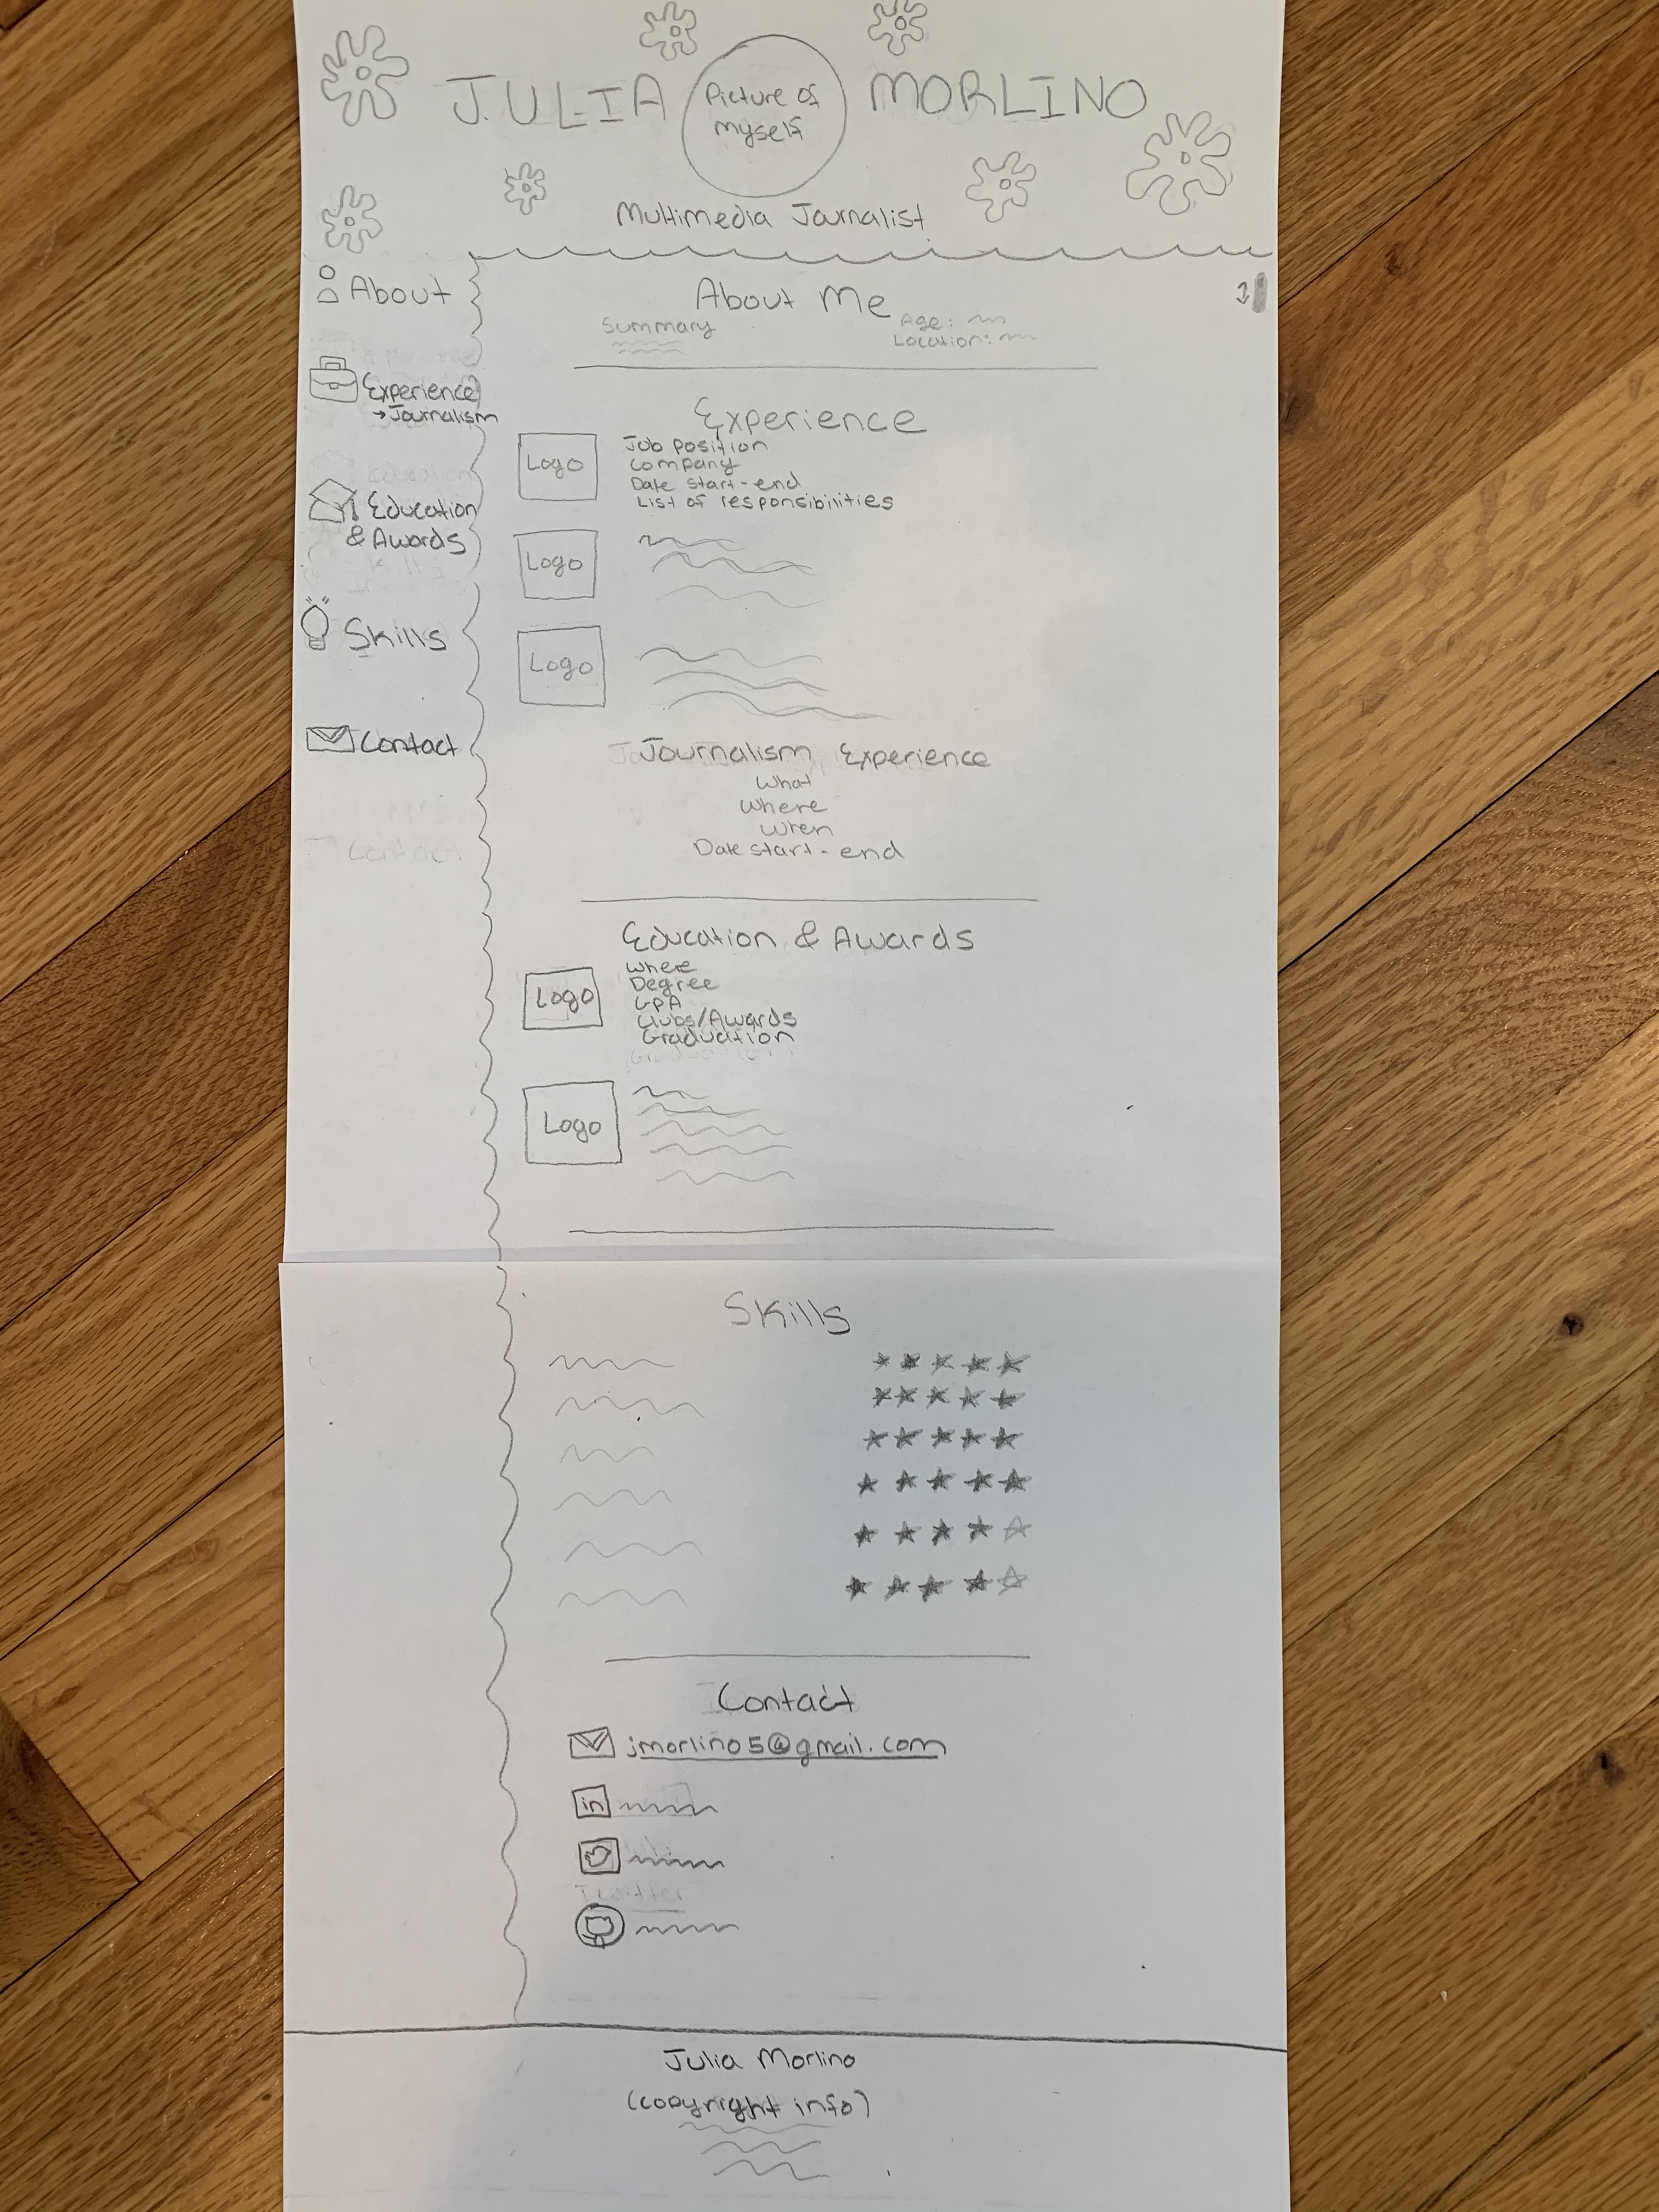 JULIA
Picture of
myself
MORLINO
Multimedia Journalist
About
Experience
→Journalism
Education
& Awards
Skills
Contact
Contact
About Me
Summary
Age:
Location:
Experience
Logo
Job position
Company
Date start-end
List of responsibilities
Logo
Logo
Journalism Experience
What
Where
When
Date start-end
Education & Awards
Logo
Where
Degree
GPA
Clubs/Awards
Graduation
Logo
Skills
Contact
jmorlino5@gmail.com
in
Twitter
Julia Morlino
(copyright info)